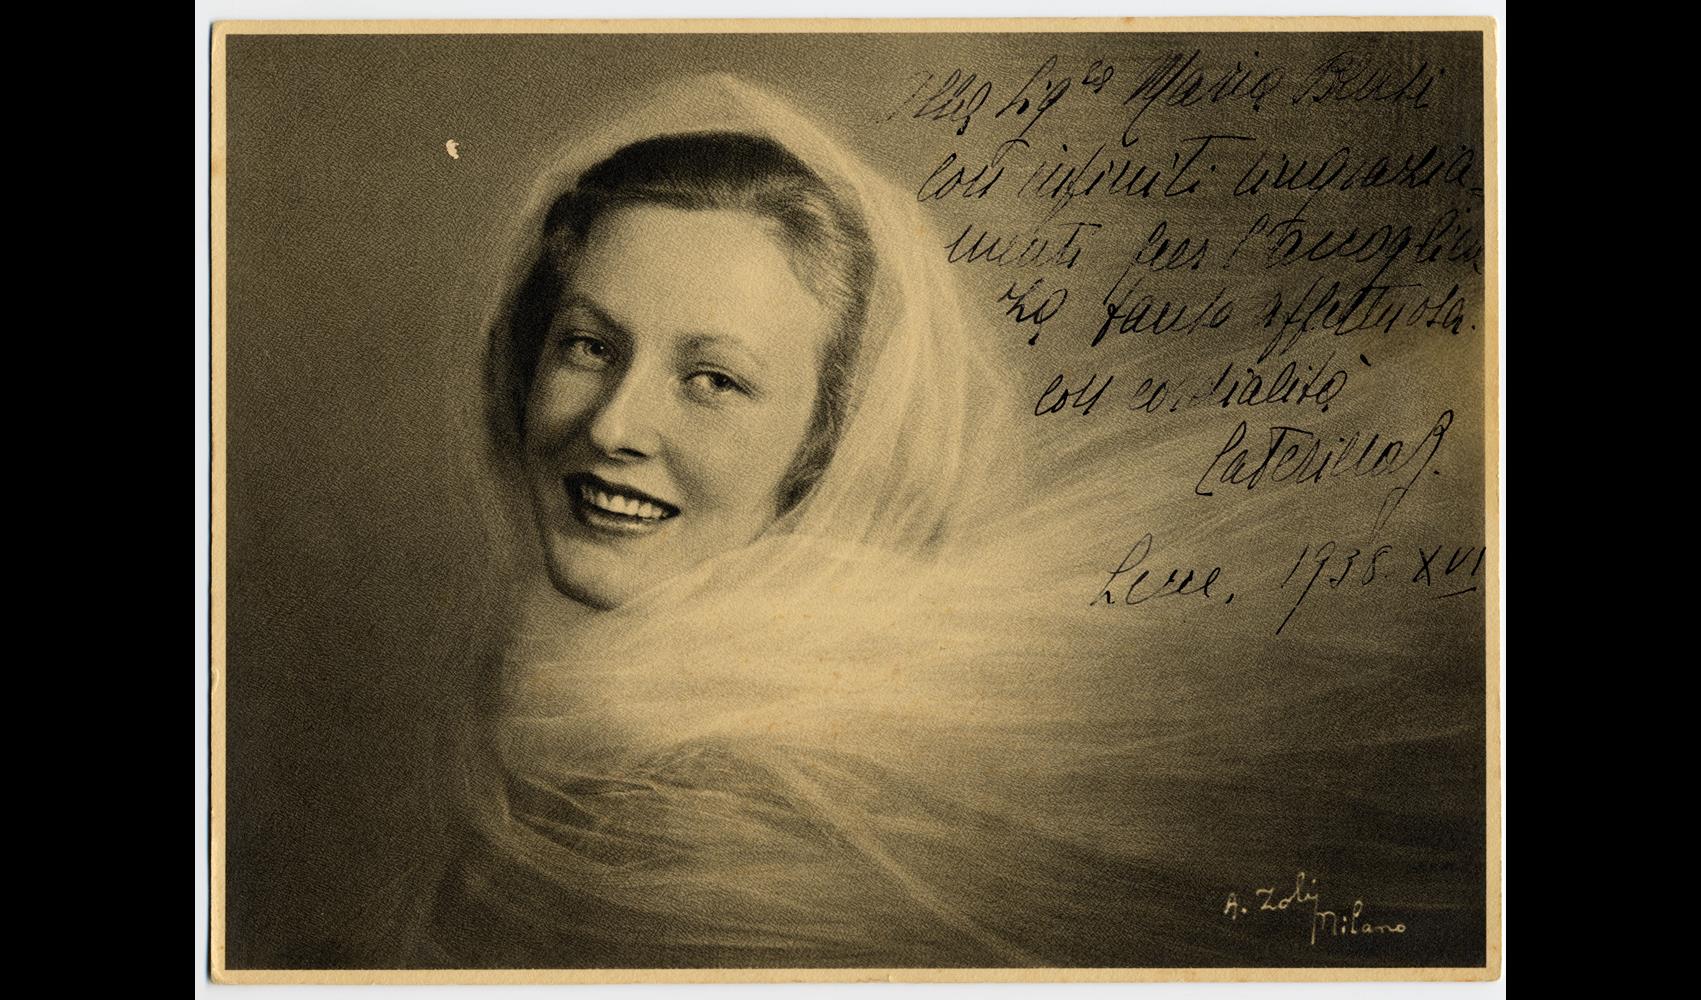 Alla Sig.ra Maria
con infiniti ringrazia-
menti per l'accoglien
za tanto affettuosa.
con cordialità
Caterina
Lecce, 1938. XVI
A. Zoli
Milano